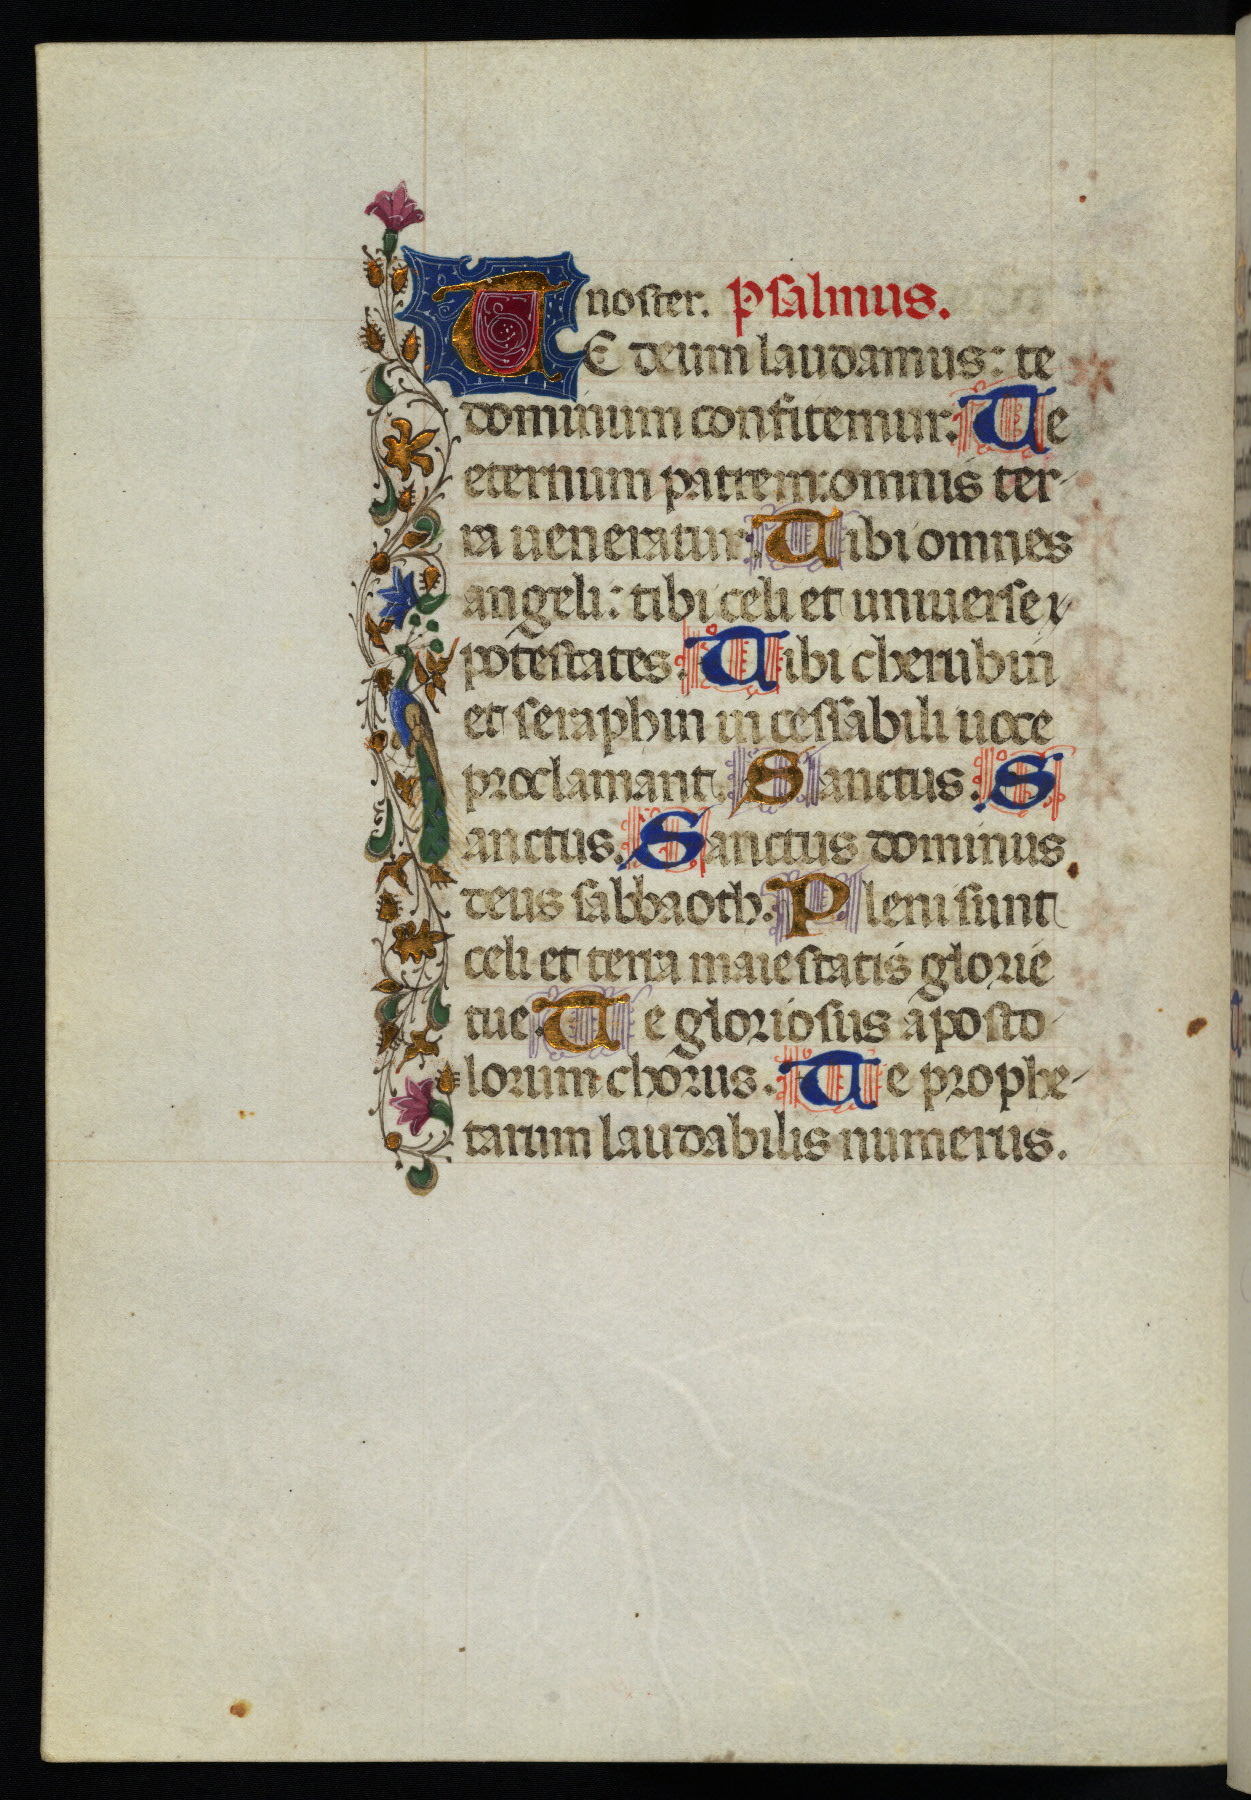 noster. Psalmus.
TE deum laudamus: te
dominum confitemur. Te
eternum patrem: omnis ter-
ra ueneratur. Tibi omnes
angeli: tibi celi et uniuerse
potestates. Tibi cherubin
et seraphin incessabili uoce
proclamant. Sanctus. S
anctus. Sanctus dominus
deus sabbaoth. Pleni sunt
celi et terra maiestatis glorie
tue. Te gloriosus aposto-
lorum chorus. Te prophe-
tarum laudabilis numerus.